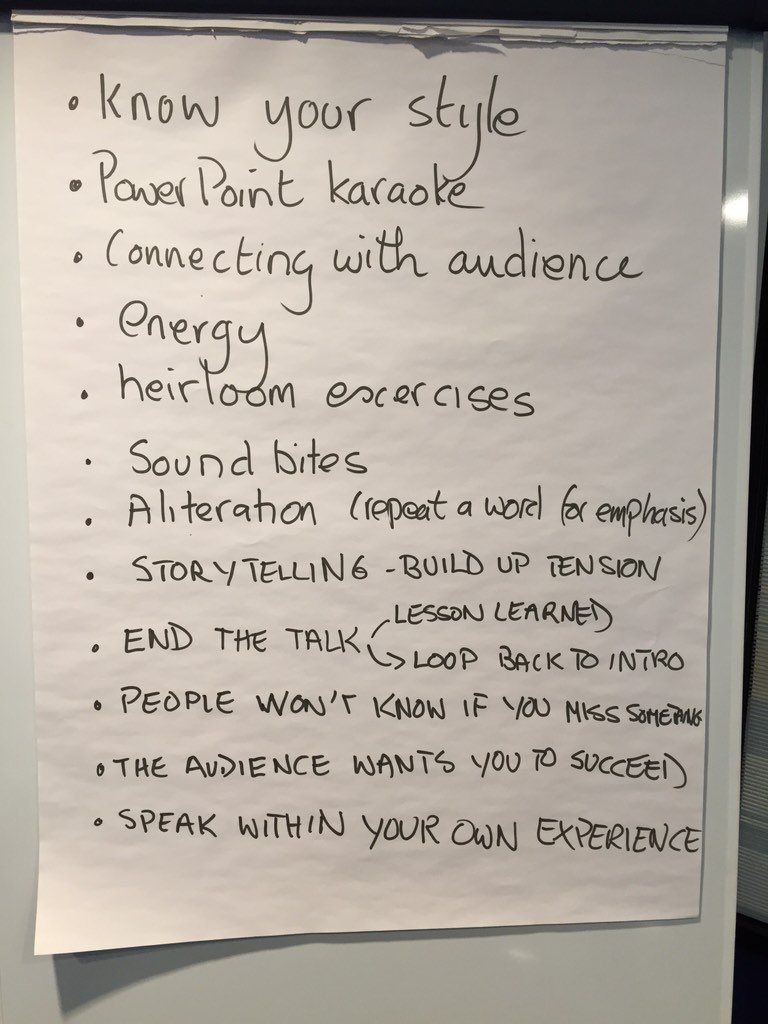 • Know your style
• PowerPoint karaoke
• Connecting with audience
• energy
• heirloom excercises
• Sound bites
• Aliteration (repeat a word for emphasis)
• STORYTELLING - BUILD UP TENSION
• END THE TALK LESSON LEARNED
→ LOOP BACK TO INTRO
• PEOPLE WON'T KNOW IF YOU MISS SOMETHING
• THE AUDIENCE WANTS YOU TO SUCCEED
• SPEAK WITHIN YOUR OWN EXPERIENCE